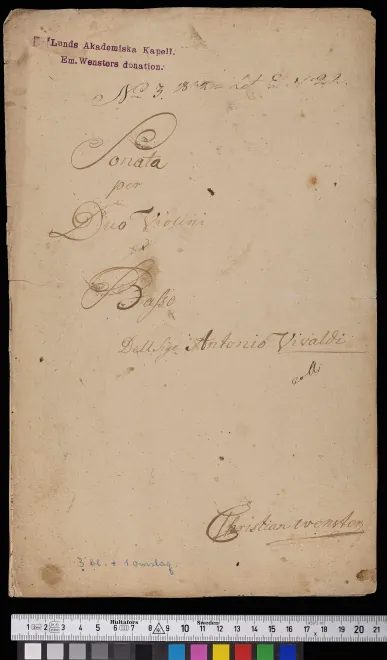 Lunds Akademiska Kapell.
Em. Wensters donation.
No 3.
Sonata
per
Duo Violini
e
Basso
Dall Sigr. Antonio Vivaldi
Christian Wenster
3 bl. + 1 omslag
Hultafors Sweden
1 2 3 4 5 6 7 8 9 10 11 12 13 14 15 16 17 18 19 20 21